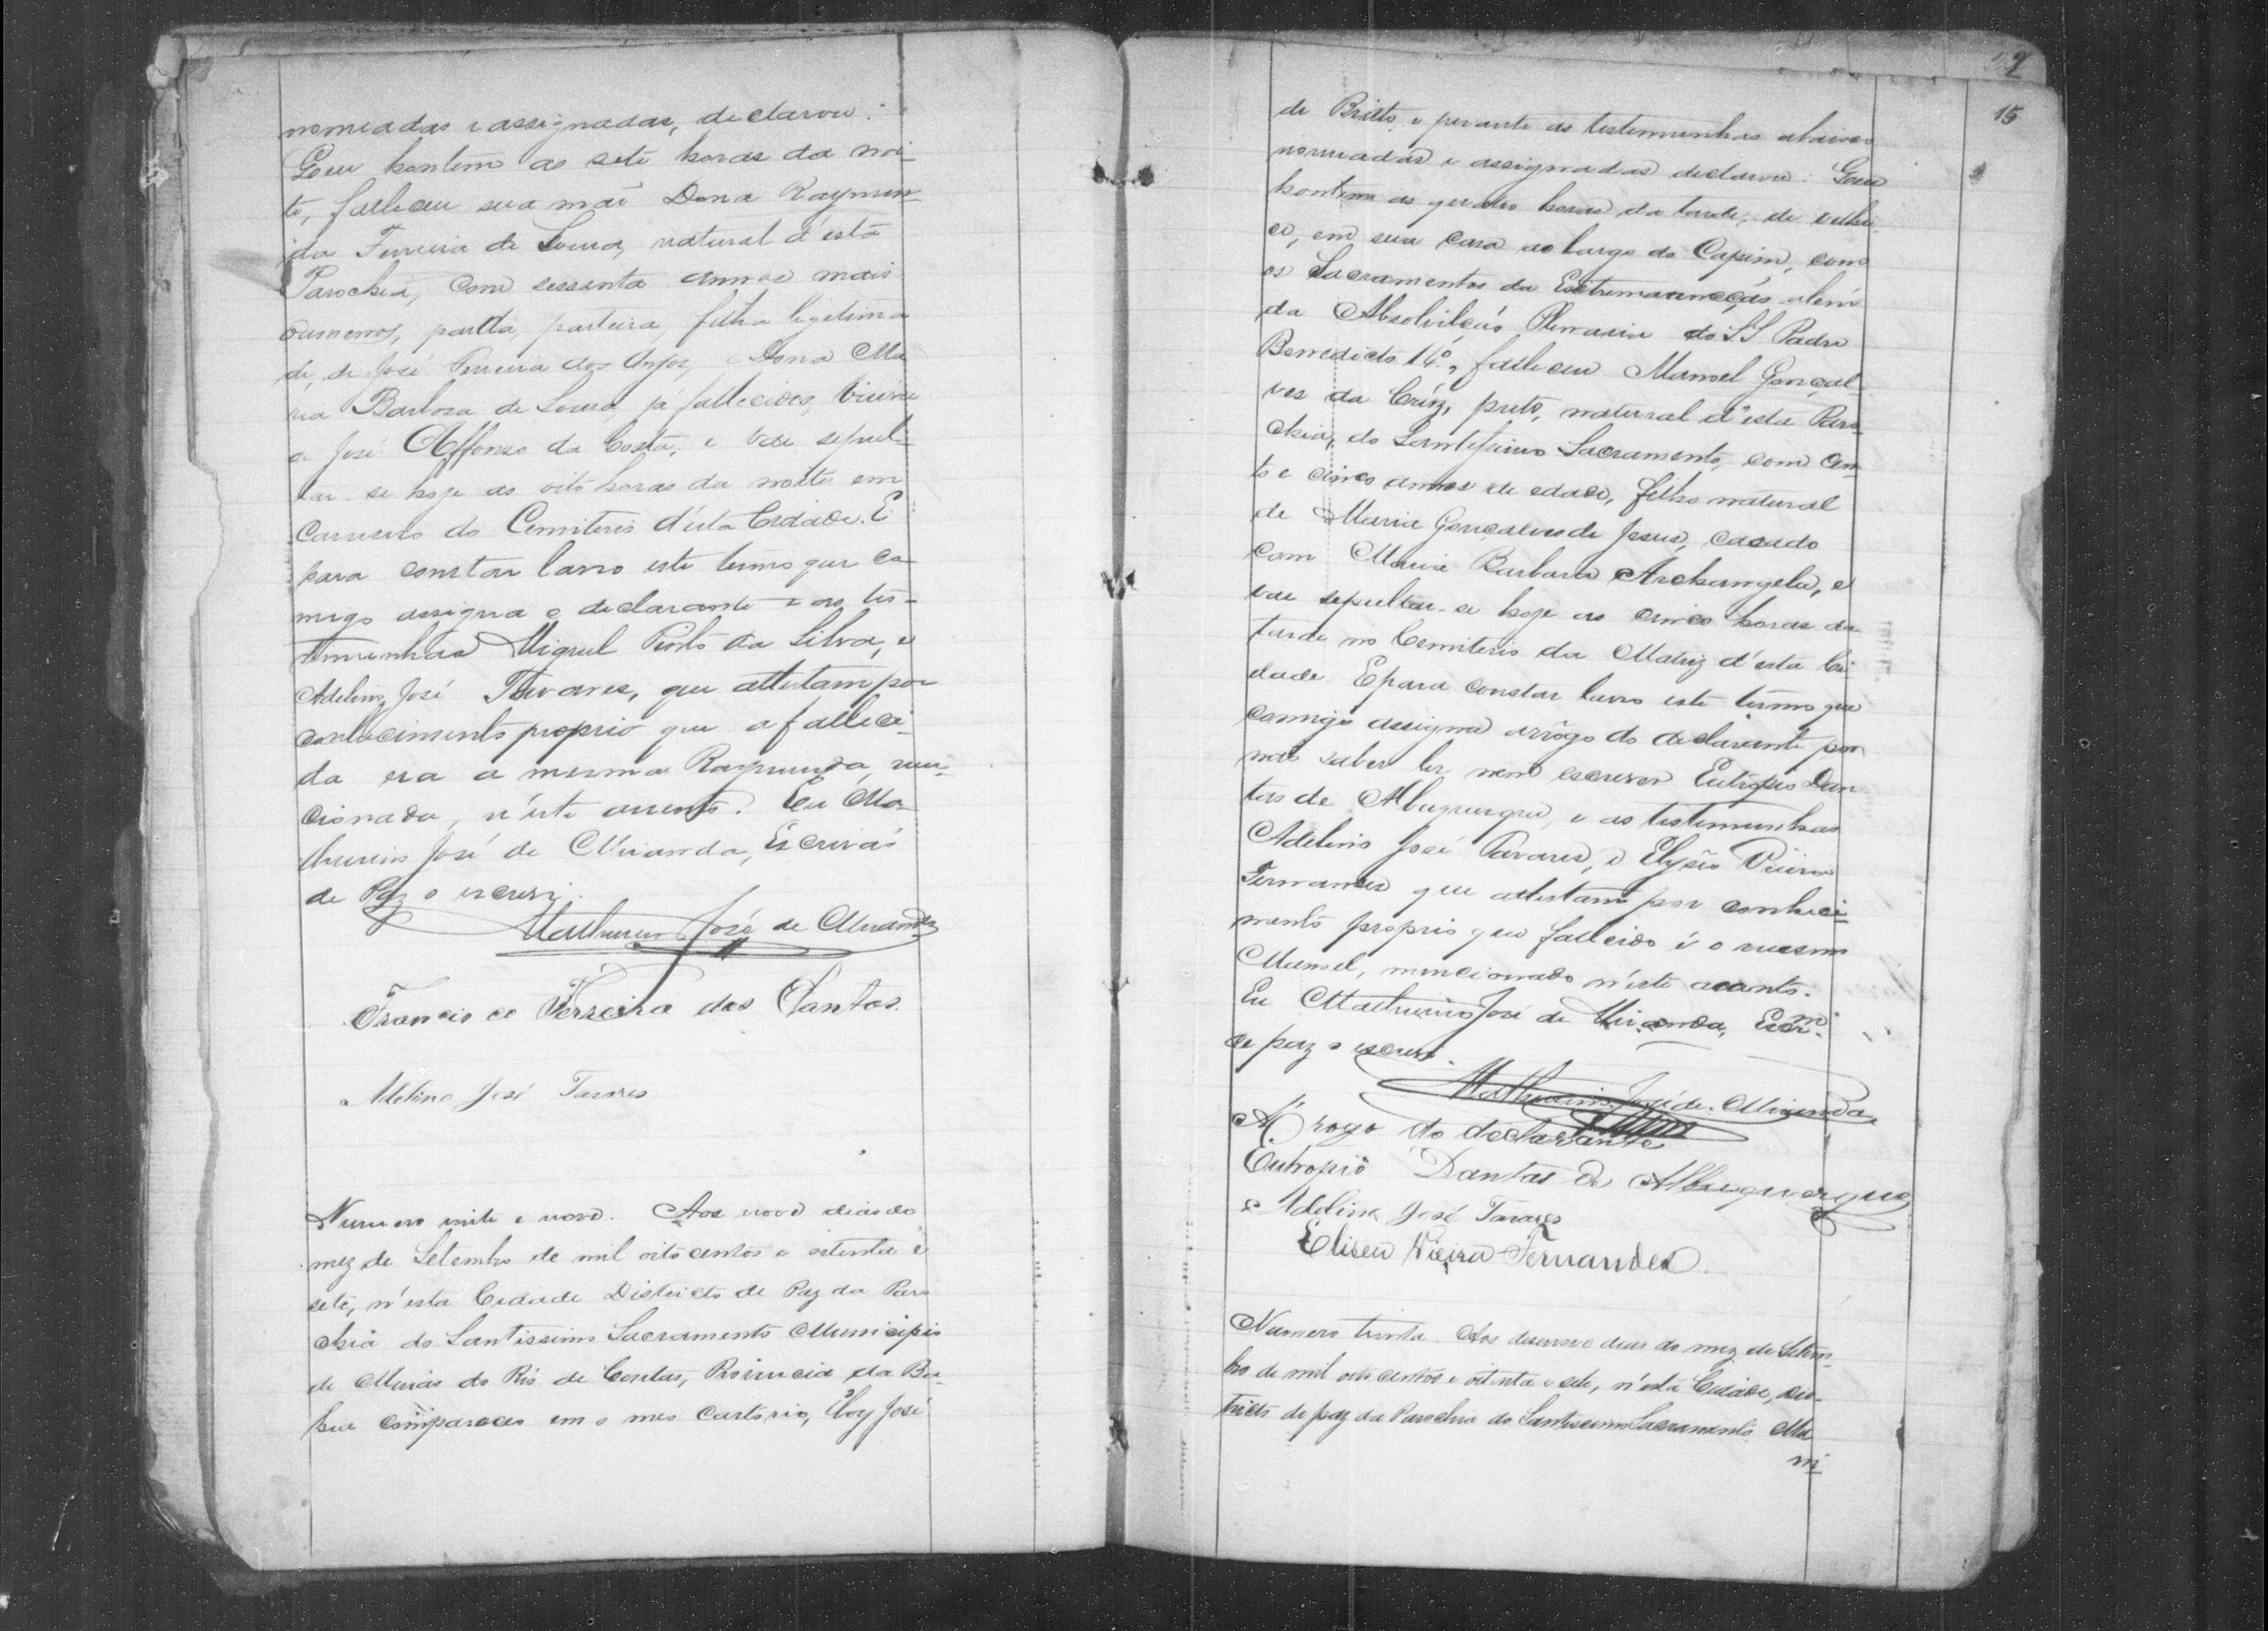 nomeadas e assignadas, declarou:
Que hontem as sete horas da noi-
te, falleceu sua mãe Dona Raymun-
da Ferreira de Souza, natural d'esta
Parochia, com sessenta annos mais
oumenos, parda, parteira, filha legitima
de, de José Ferreira dos Anjos, e Dona Ma
ria Barbosa de Souza, já fallecidos, viuva
de José Affonso da Costa, e vae sepul-
tar-se hoje as oito horas da noite em
carneiro do Cemiterio d'esta Cidade. E
para constar lavro este termo que co-
migo assigna o declarante e as tes-
temunhas Miguel Pinto da Silva, e
Adelino José Tavares, que attestam por
conhecimento proprio que a falleci-
da era a mesma Raymunda, men-
cionada, n'este assento. Eu Ma-
thurino José de Miranda, Escrivão
de Paz o escrevi.
Mathurino José de Miranda
Francisco Ferreira dos Santos.
Adelino José Tavares
Numero vinte e nove. Aos nove dias do
mez de Setembro de mil oito centos e oitenta e
sete, n'esta Cidade Districto de Paz da Paro
chia do Santissimo Sacramento Municipio
de Minas do Rio de Contas, Provincia da Ba-
hia compareceo em o meo cartorio, Eloy José
29
15
de Britto, e perante as testemunhas abaixo
nomeadas e assignadas declarou: Que
hontem as quatro horas da tarde, de velhi-
ce, em sua casa ao largo do Capim, com
os Sacramentos da Extremauncção, alem
da Absolvição Plenaria do SS Padre
Benedicto 14º, falleceu Manoel Gonçal-
ves da Cruz, preto, natural d'esta Paro-
chia, do Santissimo Sacramento, com cen-
to e cinco annos de edade, filho natural
de Maria Gonçalves de Jesus, casado
com Maria Barbara Archangela, e
vae sepultar-se hoje as cinco horas da
tarde no Cemiterio da Matriz d'esta Ci-
dade. Epara constar lavro este termo que
comigo assigna arrôgo do declarante por
não saber ler nem escrever Eutropio Dan
tas de Albuquerque, e as testemunhas
Adelino José Tavares, e Elysêo Vieira
Fernandes que attestam por conheci-
mento proprio que fallecido é o mesmo
Manoel, mencionado n'este acento.
Eu Mathurino José de Miranda, Escrm.
de paz o escrevi.
Mathurino José de Miranda
A rogo do declarante
Eutropio Dantas de Albuquerque
Adelino José Tavares
Eliseu Vieira Fernandes.
Numero trinta. Aos desenove dias do mez de Setem-
bro de mil oito centos e oitenta e sete, n'esta Cidade, dis-
tricto de paz da Parochia do Santissimo Sacramento Mu
ni